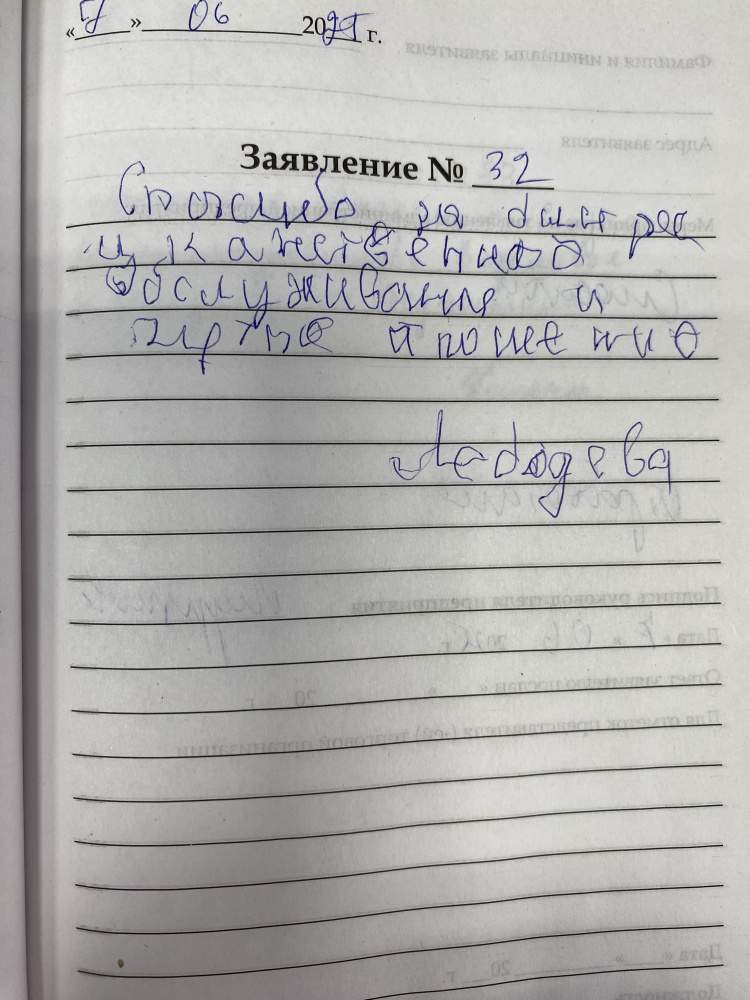 «7» 06 2025 г.
Заявление № 32
Спасибо за быстрое
и качественное
обслуживание и
отношение
Лебедева